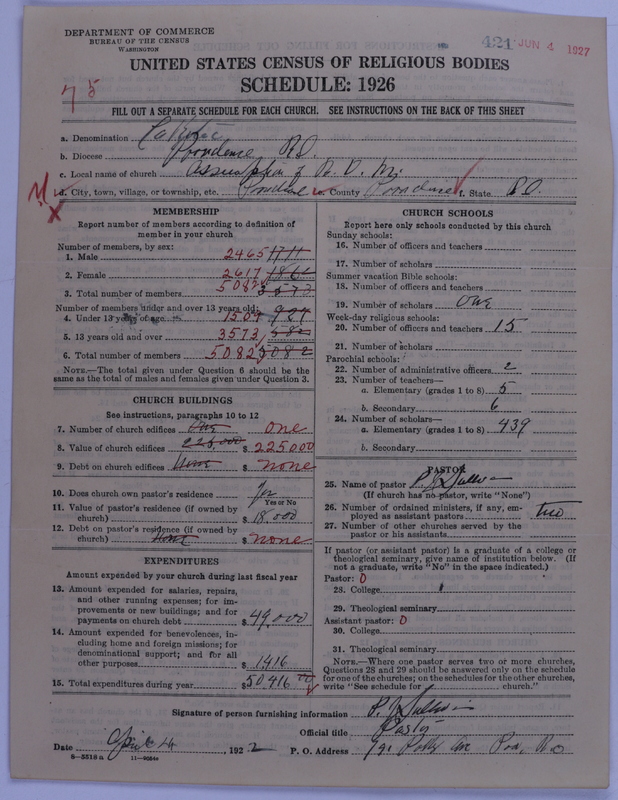 DEPARTMENT OF COMMERCE
BUREAU OF THE CENSUS
WASHINGTON
421 JUN 4 1927
UNITED STATES CENSUS OF RELIGIOUS BODIES
SCHEDULE: 1926
75
FILL OUT A SEPARATE SCHEDULE FOR EACH CHURCH. SEE INSTRUCTIONS ON THE BACK OF THIS SHEET
a. Denomination Catholic
b. Diocese Providence R.I.
c. Local name of church Assumption of B. V. M.
d. City, town, village, or township, etc. Providence e. County Providence f. State R.I.
MEMBERSHIP
Report number of members according to definition of
member in your church
Number of members, by sex:
1. Male 2465 1711
2. Female 2617 1862
3. Total number of members 5082 3573
Number of members under and over 13 years old:
4. Under 13 years of age 1509
5. 13 years old and over 3573
6. Total number of members 5082 5082
NOTE.—The total given under Question 6 should be the
same as the total of males and females given under Question 3.
CHURCH BUILDINGS
See instructions, paragraphs 10 to 12
7. Number of church edifices One one
8. Value of church edifices 225,000 $ 225000
9. Debt on church edifices None $ none
10. Does church own pastor's residence Yes
Yes or No
11. Value of pastor's residence (if owned by
church) $ 18,000
12. Debt on pastor's residence (if owned by
church) None $ none
EXPENDITURES
Amount expended by your church during last fiscal year
13. Amount expended for salaries, repairs,
and other running expenses; for im-
provements or new buildings; and for
payments on church debt $ 49,000
14. Amount expended for benevolences, in-
cluding home and foreign missions; for
denominational support; and for all
other purposes $ 1416
15. Total expenditures during year $ 50,416 00
CHURCH SCHOOLS
Report here only schools conducted by this church
Sunday schools:
16. Number of officers and teachers
17. Number of scholars
Summer vacation Bible schools:
18. Number of officers and teachers
19. Number of scholars One
Week-day religious schools:
20. Number of officers and teachers 15
21. Number of scholars
Parochial schools:
22. Number of administrative officers 2
23. Number of teachers—
a. Elementary (grades 1 to 8) 5
b. Secondary 6
24. Number of scholars—
a. Elementary (grades 1 to 8) 439
b. Secondary
PASTOR
25. Name of pastor P. J. Sullivan
(If church has no pastor, write "None")
26. Number of ordained ministers, if any, em-
ployed as assistant pastors two
27. Number of other churches served by the
pastor or his assistants
If pastor (or assistant pastor) is a graduate of a college or
theological seminary, give name of institution below. (If
not a graduate, write "No" in the space indicated.)
Pastor: 0
28. College
29. Theological seminary
Assistant pastor: 0
30. College
31. Theological seminary
NOTE.—Where one pastor serves two or more churches,
Questions 28 and 29 should be answered only on the schedule
for one of the churches; on the schedules for the other churches,
write "See schedule for church."
Signature of person furnishing information P. J. Sullivan
Official title Pastor
Date April 4, 192 P. O. Address 791 Potters Av. Prov. R.I.
8—5518 a 11—9054a